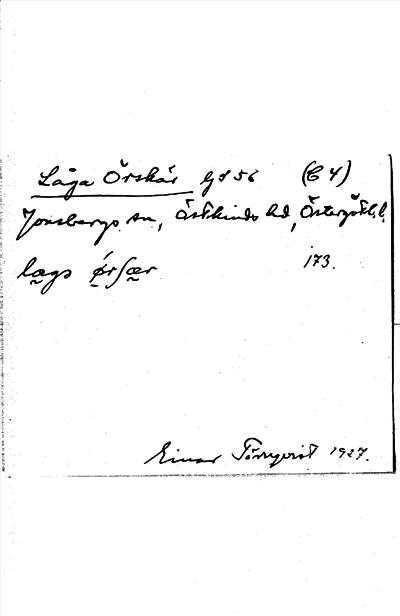 Låga Örskär GS 56 (C 4)
Jonsbergs sn, Östkinds hd, Östergötl. l.
lægs ǿrʃær 173.
Einar Törnqvist 1927.